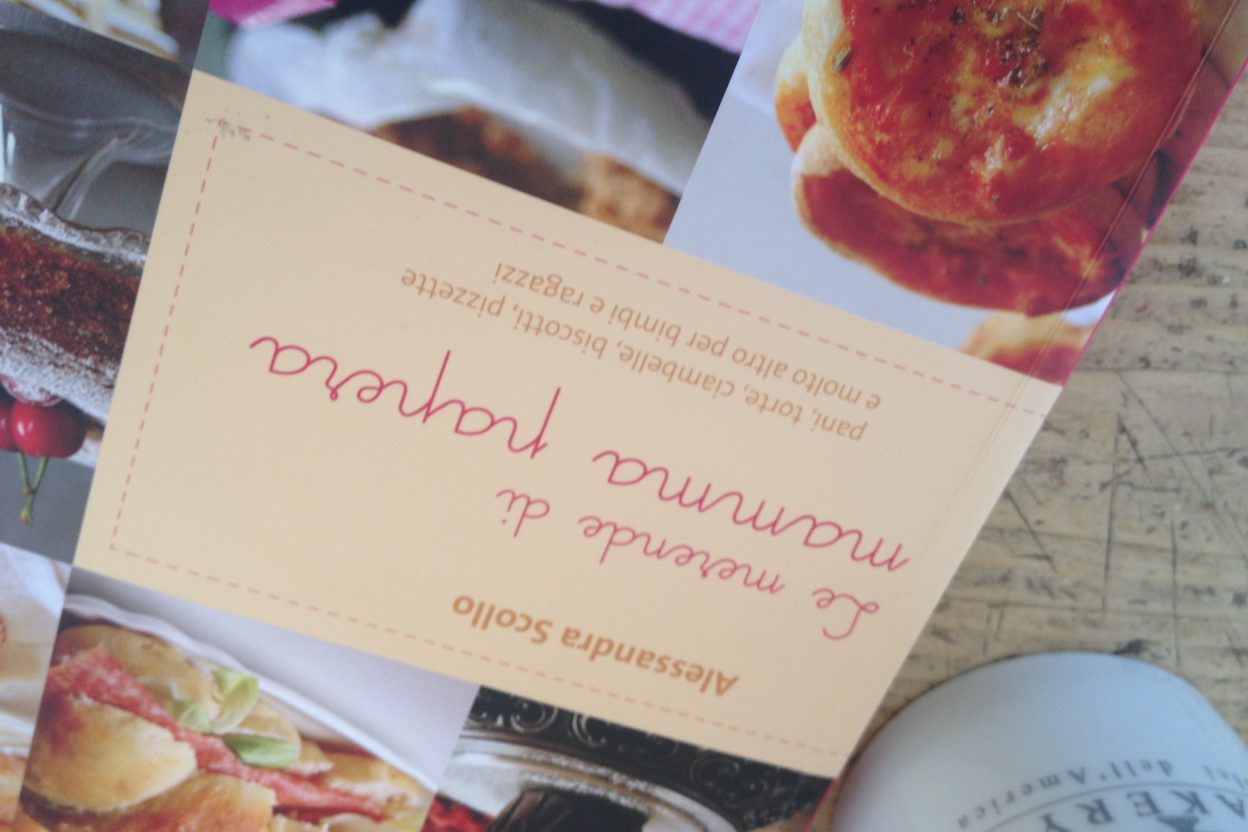 Alessandra Scollo
Le merende di
mamma papera
pani, torte, ciambelle, biscotti, pizzette
e molto altro per bimbi e ragazzi
dell'America